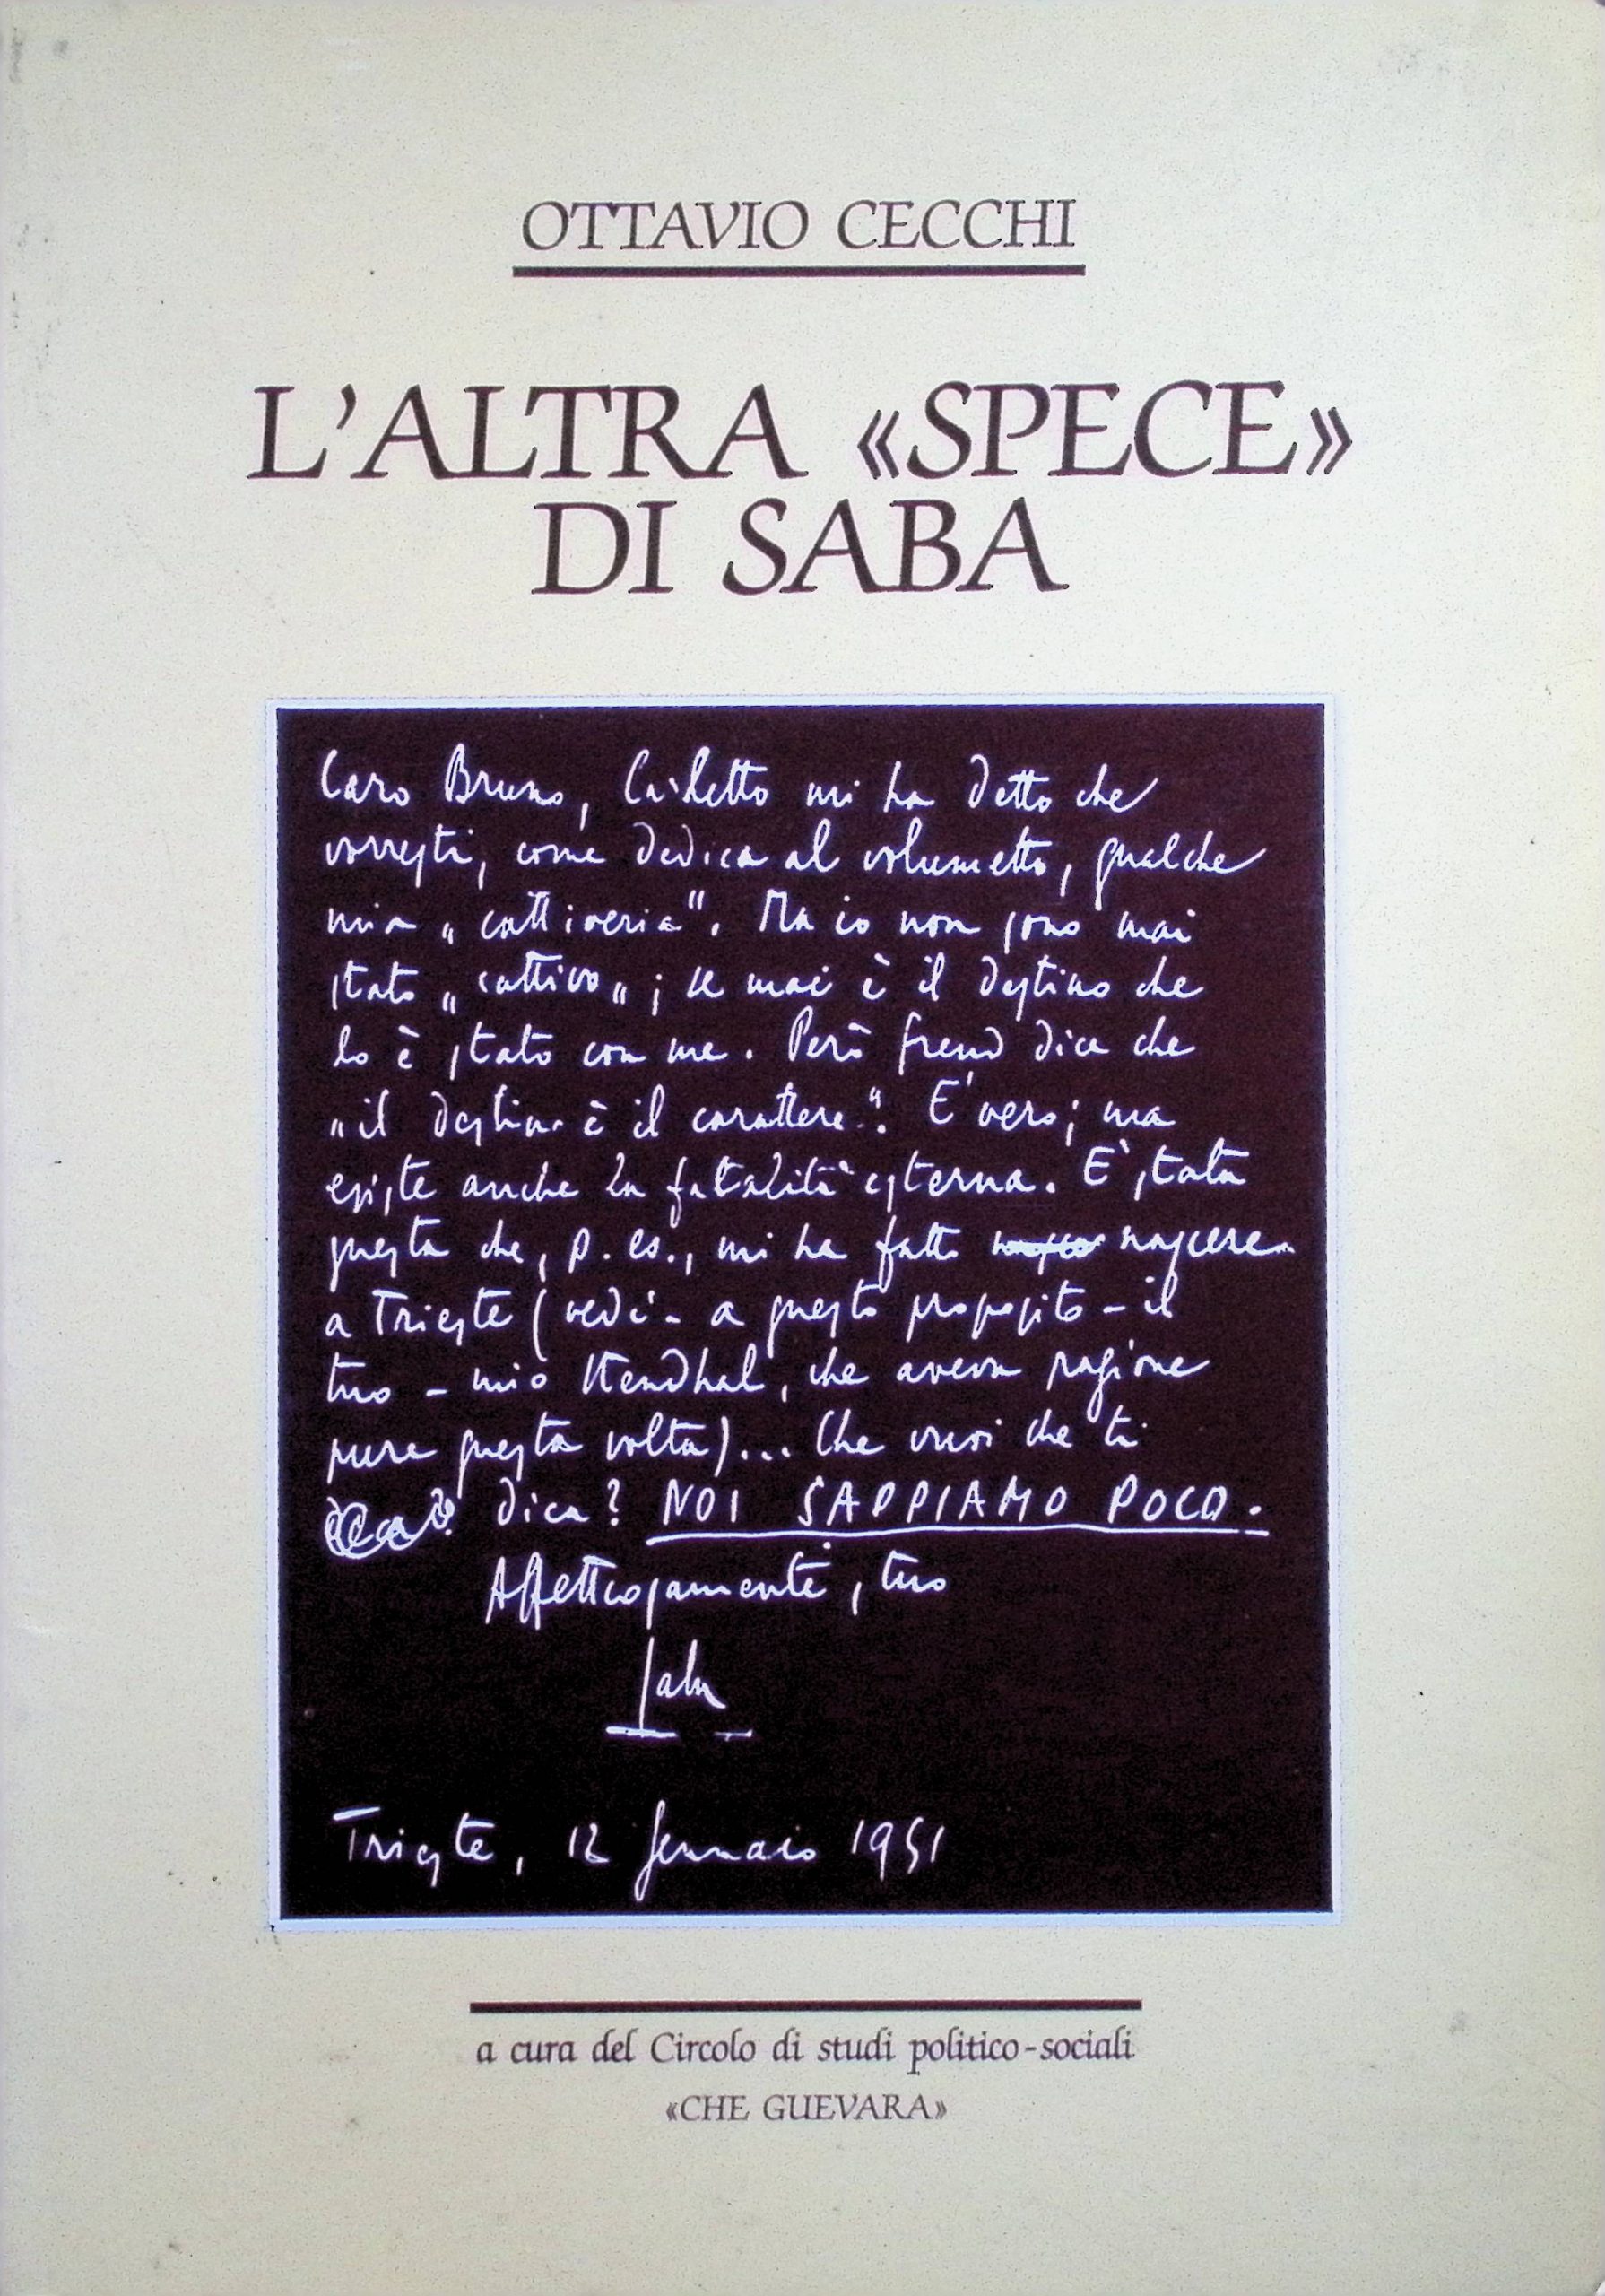 OTTAVIO CECCHI
L'ALTRA «SPECE»
DI SABA
Caro Bruno, Carletto mi ha detto che
vorresti, come dedica al volumetto, qualche
mia „cattiveria". Ma io non sono mai
stato „cattivo„; se mai è il destino che
lo è stato con me. Però Freud dice che
„il destino è il carattere". E' vero; ma
esiste anche la fatalità esterna. E' stata
questa che, p. es., mi ha fatto nascere
a Trieste (vedi - a questo proposito - il
tuo - mio Stendhal, che aveva ragione
pure questa volta)... Che vuoi che ti
dica? NOI SAPPIAMO POCO.
Affettuosamente, tuo
Saba
Trieste, 12 gennaio 1951
a cura del Circolo di studi politico-sociali
«CHE GUEVARA»